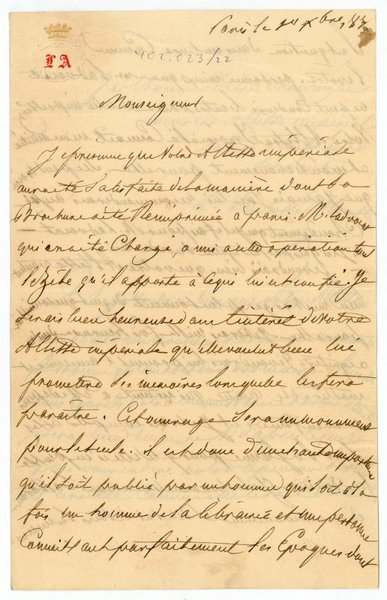 Paris le
LA
902.023/22
Monseigneur
Je présume que Votre Altesse impériale
aura été Satisfaite de la manière dont Sa
Brochure a été Réimprimée à paris. M. Ladvocat
qui en a été Chargé, a mis à cette opération tout
le Zèle qu'il apporte à ce qui lui est confié. Je
Serais bien heureuse dans l'intérêt de Votre
Altesse impériale qu'elle voulut bien lui
promettre Ses mémoires lorsqu'elle les fera
paraître. Cet ouvrage Sera un monument
pour le Siècle. il est donc d'une haute importance
qu'il Soit publié par un homme qui Soit à la
fois un homme de la librairie et une personne
Connaissant parfaitement les Epoques dont